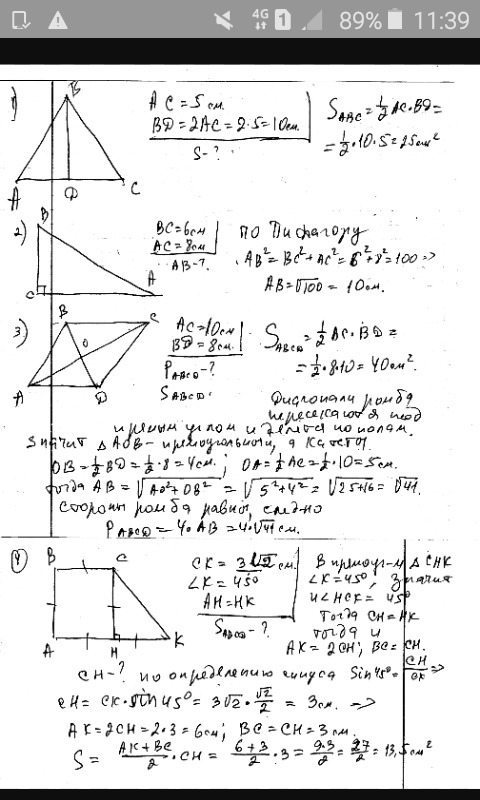 4G 1 89% 11:39
1)
B
A D C
AC = 5 см.
BD = 2AC = 2·5 = 10см.
S - ?
S_ABC = 1/2 AC·BD =
= 1/2·10·5 = 25см²
2)
B
C A
BC = 6см
AC = 8см
AB - ?
по Пифагору
AB² = BC² + AC² = 6² + 8² = 100 =>
AB = √100 = 10см.
3)
B C
O
A D
AC = 10см
BD = 8см.
P_ABCD - ?
S_ABCD -
S_ABCD = 1/2 AC·BD =
= 1/2·8·10 = 40см².
Диагонали ромба
пересекаются под
прямым углом и делятся пополам.
Значит △ AOB - прямоугольный, а катеты
OB = 1/2 BD = 1/2·8 = 4см.; OA = 1/2 AC = 1/2·10 = 5см.
тогда AB = √AO² + OB² = √5² + 4² = √25+16 = √41.
Стороны ромба равны, следно
P_ABCD = 4·AB = 4·√41 см.
4
B C
A H K
CK = 3√2 см.
∠K = 45°
AH = HK
S_ABCD - ?
В прямоуг-м △ CHK
∠K = 45°, значит
и ∠HCK = 45°
Тогда CH = HK
тогда и
AK = 2CH; BC = CH.
CH - ? по определению синуса Sin45° = CH/CK =>
CH = CK·sin45° = 3√2·√2/2 = 3см. =>
AK = 2CH = 2·3 = 6см; BC = CH = 3см.
S = (AK + BC)/2 · CH = (6+3)/2 · 3 = 9·3/2 = 27/2 = 13,5см²